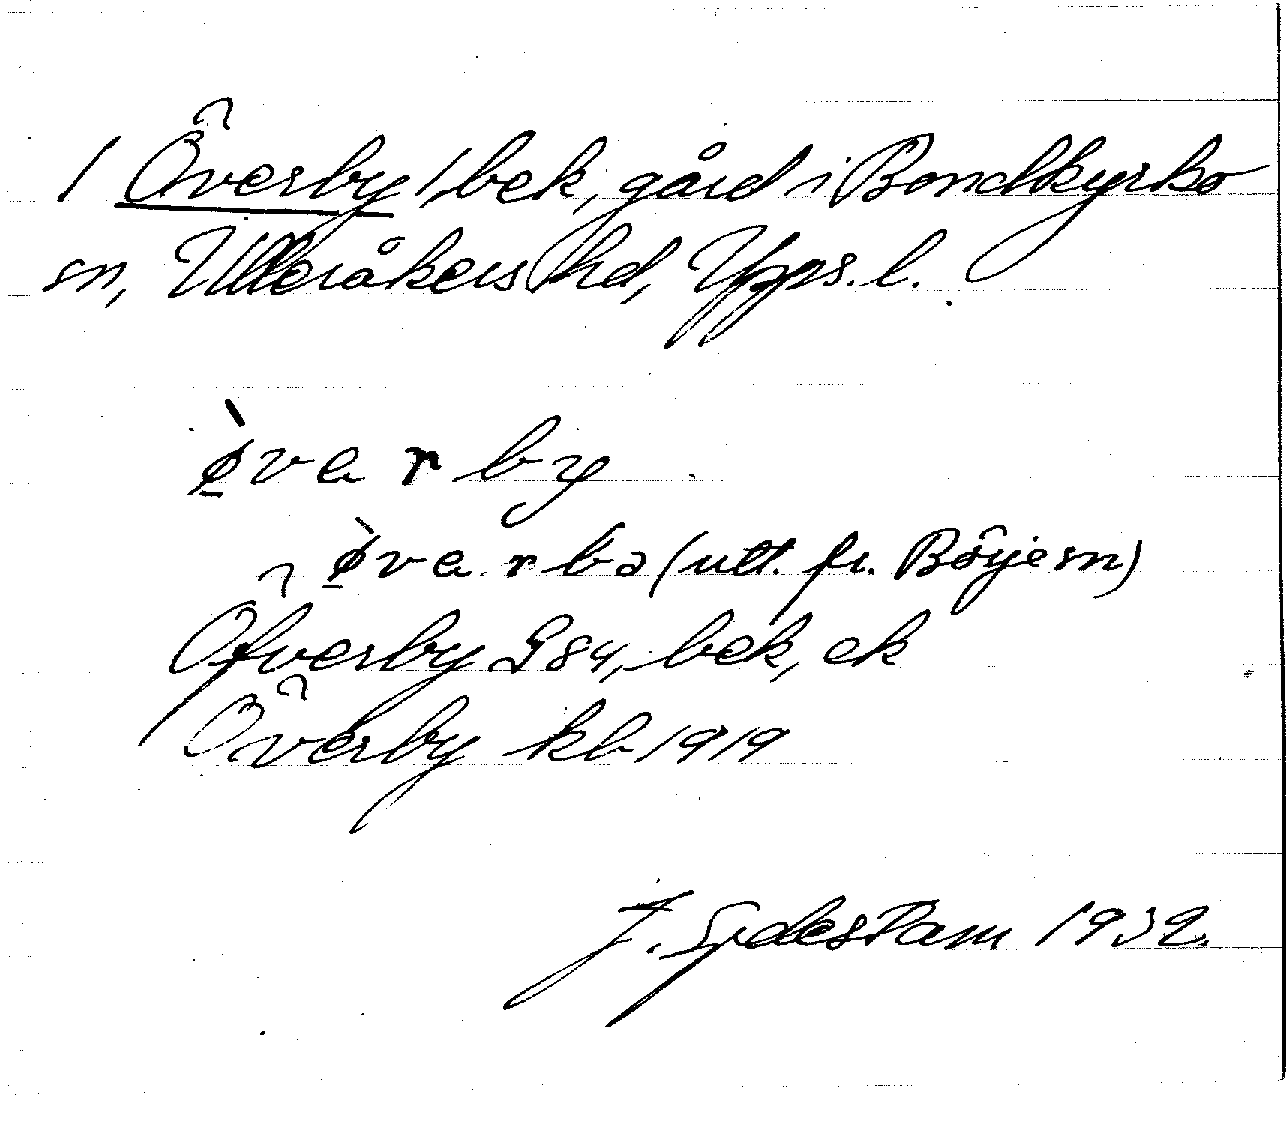 / Överby /, bek, gård i Bondkyrko
sn, Ulleråkers hd, Upps. l.
ø̀varby
ø̀varbə (utt. fr. Börje sn)
Öfverby G 84, bek, ek
Överby kb 1919
J. Sydestam 1932.